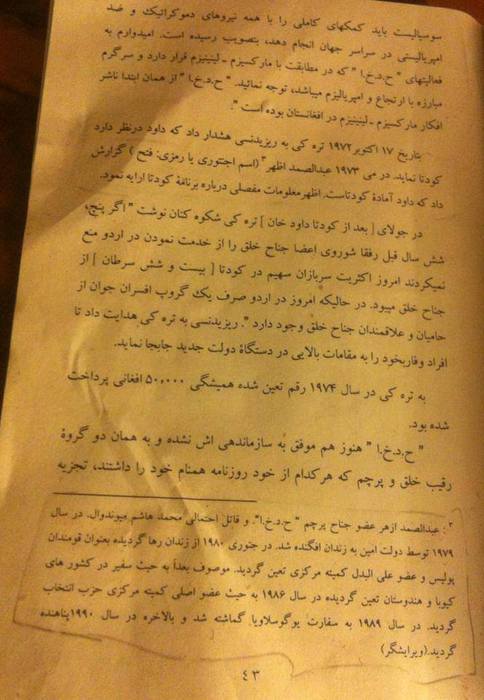 سوسیالیست باید کمکهای کاملی را با همه نیروهای دموکراتیك و ضد
امپریالیستی در سراسر جهان انجام دهد، بتصویب رسیده است. امیدوارم به
فعالیتهای " ح.د.خ.ا " که در مطابقت با مارکسیزم ـ لیننیزم قرار دارد و سرگرم
مبارزه با ارتجاع و امپریالیزم میباشد، توجه نمائید. " ح.د.خ.ا " از همان ابتدا ناشر
افکار مارکسیزم ـ لیننیزم در افغانستان بوده است ".
بتاریخ ۱۷ اکتوبر ۱۹۷۲ تره کی به ریزیدنسی هشدار داد که داود درنظر دارد
کودتا نماید. در می ۱۹۷۳ عبدالصمد اظهر۲ (اسم اجنتوری یا رمزی: فتح ) گزارش
داد که داود آمادهٔ کودتاست. اظهرمعلومات مفصلی درباره برنامهٔ کودتا ارایه نمود.
در جولای [ بعد از کودتا داود خان ] تره کی شکوه کنان نوشت " اگر پنج،
شش سال قبل رفقا شوروی اعضا جناح خلق را از خدمت نمودن در اردو منع
نمیکردند امروز اکثریت سربازان سهیم در کودتا [ بیست و شش سرطان ] از
جناح خلق میبود. در حالیکه امروز در اردو صرف یك گروپ افسران جوان از
حامیان و علاقمندان جناح خلق وجود دارد ". ریزیدنسی به تره کی هدایت داد تا
افراد وفاربخود را به مقامات بالایی در دستگاهٔ دولت جدید جابجا نماید.
به تره کی در سال ۱۹۷۴ رقم تعین شده همیشگی ۵۰,۰۰۰ افغانی پرداخت
شده بود.
" ح.د.خ.ا " هنوز هم موفق به سازماندهی اش نشده و به همان دو گروهٔ
رقیب خلق و پرچم که هرکدام از خود روزنامه همنام خود را داشتند، تجزیه
۲ : عبدالصمد ازهر عضو جناح پرچم " ح.د.خ.ا". و قاتل احتمالی محمد هاشم میوندوال. در سال
۱۹۷۹ توسط دولت امین به زندان افگنده شد. در جنوری ۱۹۸۰ از زندان رها گردیده بعنوان قومندان
پولیس و عضو علی البدل کمیته مرکزی تعین گردید. موصوف بعداً به حیث سفیر در کشور های
کیوبا و هندوستان تعین گردیده در سال ۱۹۸۶ به حیث عضو اصلی کمیته مرکزی حزب انتخاب
گردید. در سال ۱۹۸۹ به سفارت یوگوسلاویا گماشته شد و بالاخره در سال ۱۹۹۰پناهنده
گردید.(ویرایشگر)
٤٣